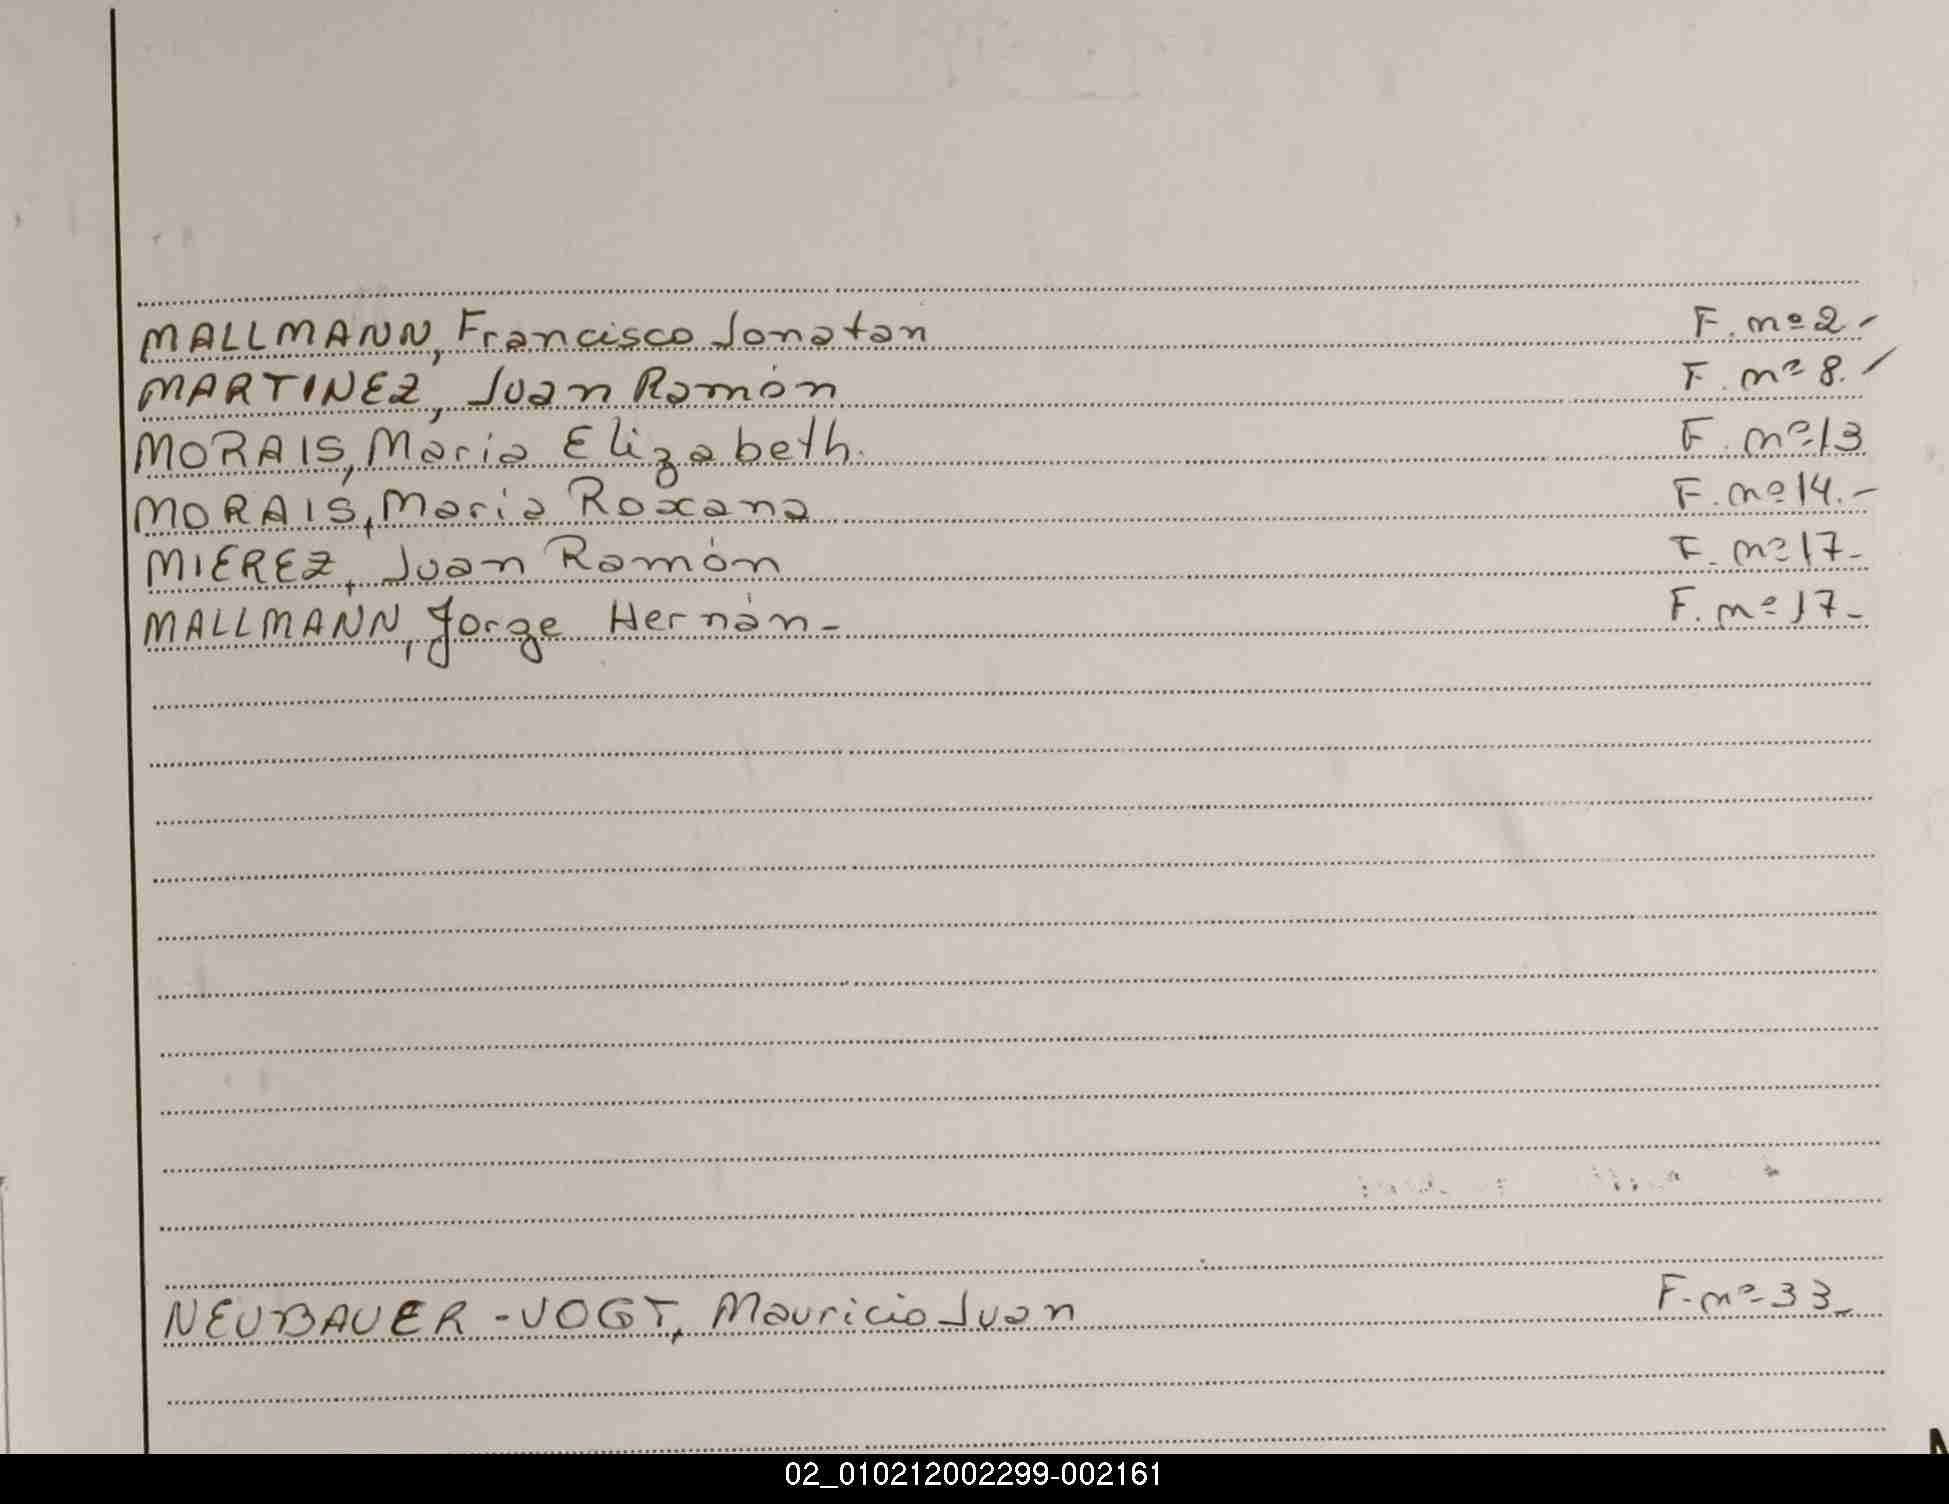 MALLMANN, Francisco Jonatan F. nº 2.-
MARTINEZ, Juan Ramón F. nº 8.-
MORAIS, Maria Elizabeth. F. nº 13
MORAIS, Maria Roxana F. nº 14.-
MIEREZ, Juan Ramón F. nº 17-
MALLMANN, Jorge Hernán- F. nº 17-
NEUBAUER - VOGT, Mauricio Juan F. nº 33-
02_010212002299-002161